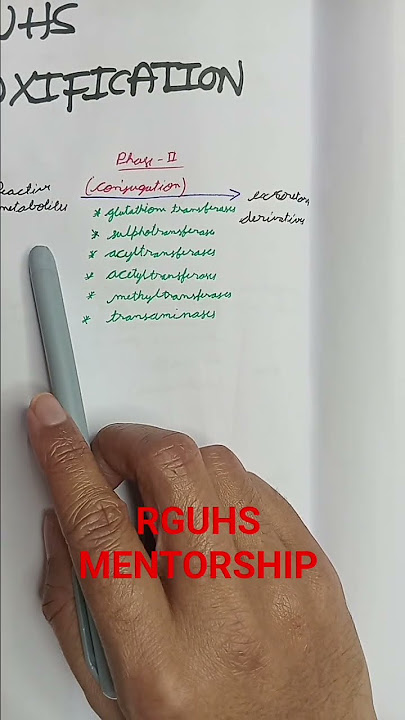 UHS
OXIFICATION
Phase-II
(conjugation)
Reactive metabolites
excretory derivatives
* glutathion transferases
* sulphotransferases
* acyltransferases
* acetyltransferases
* methyltransferases
* transaminases
RGUHS
MENTORSHIP